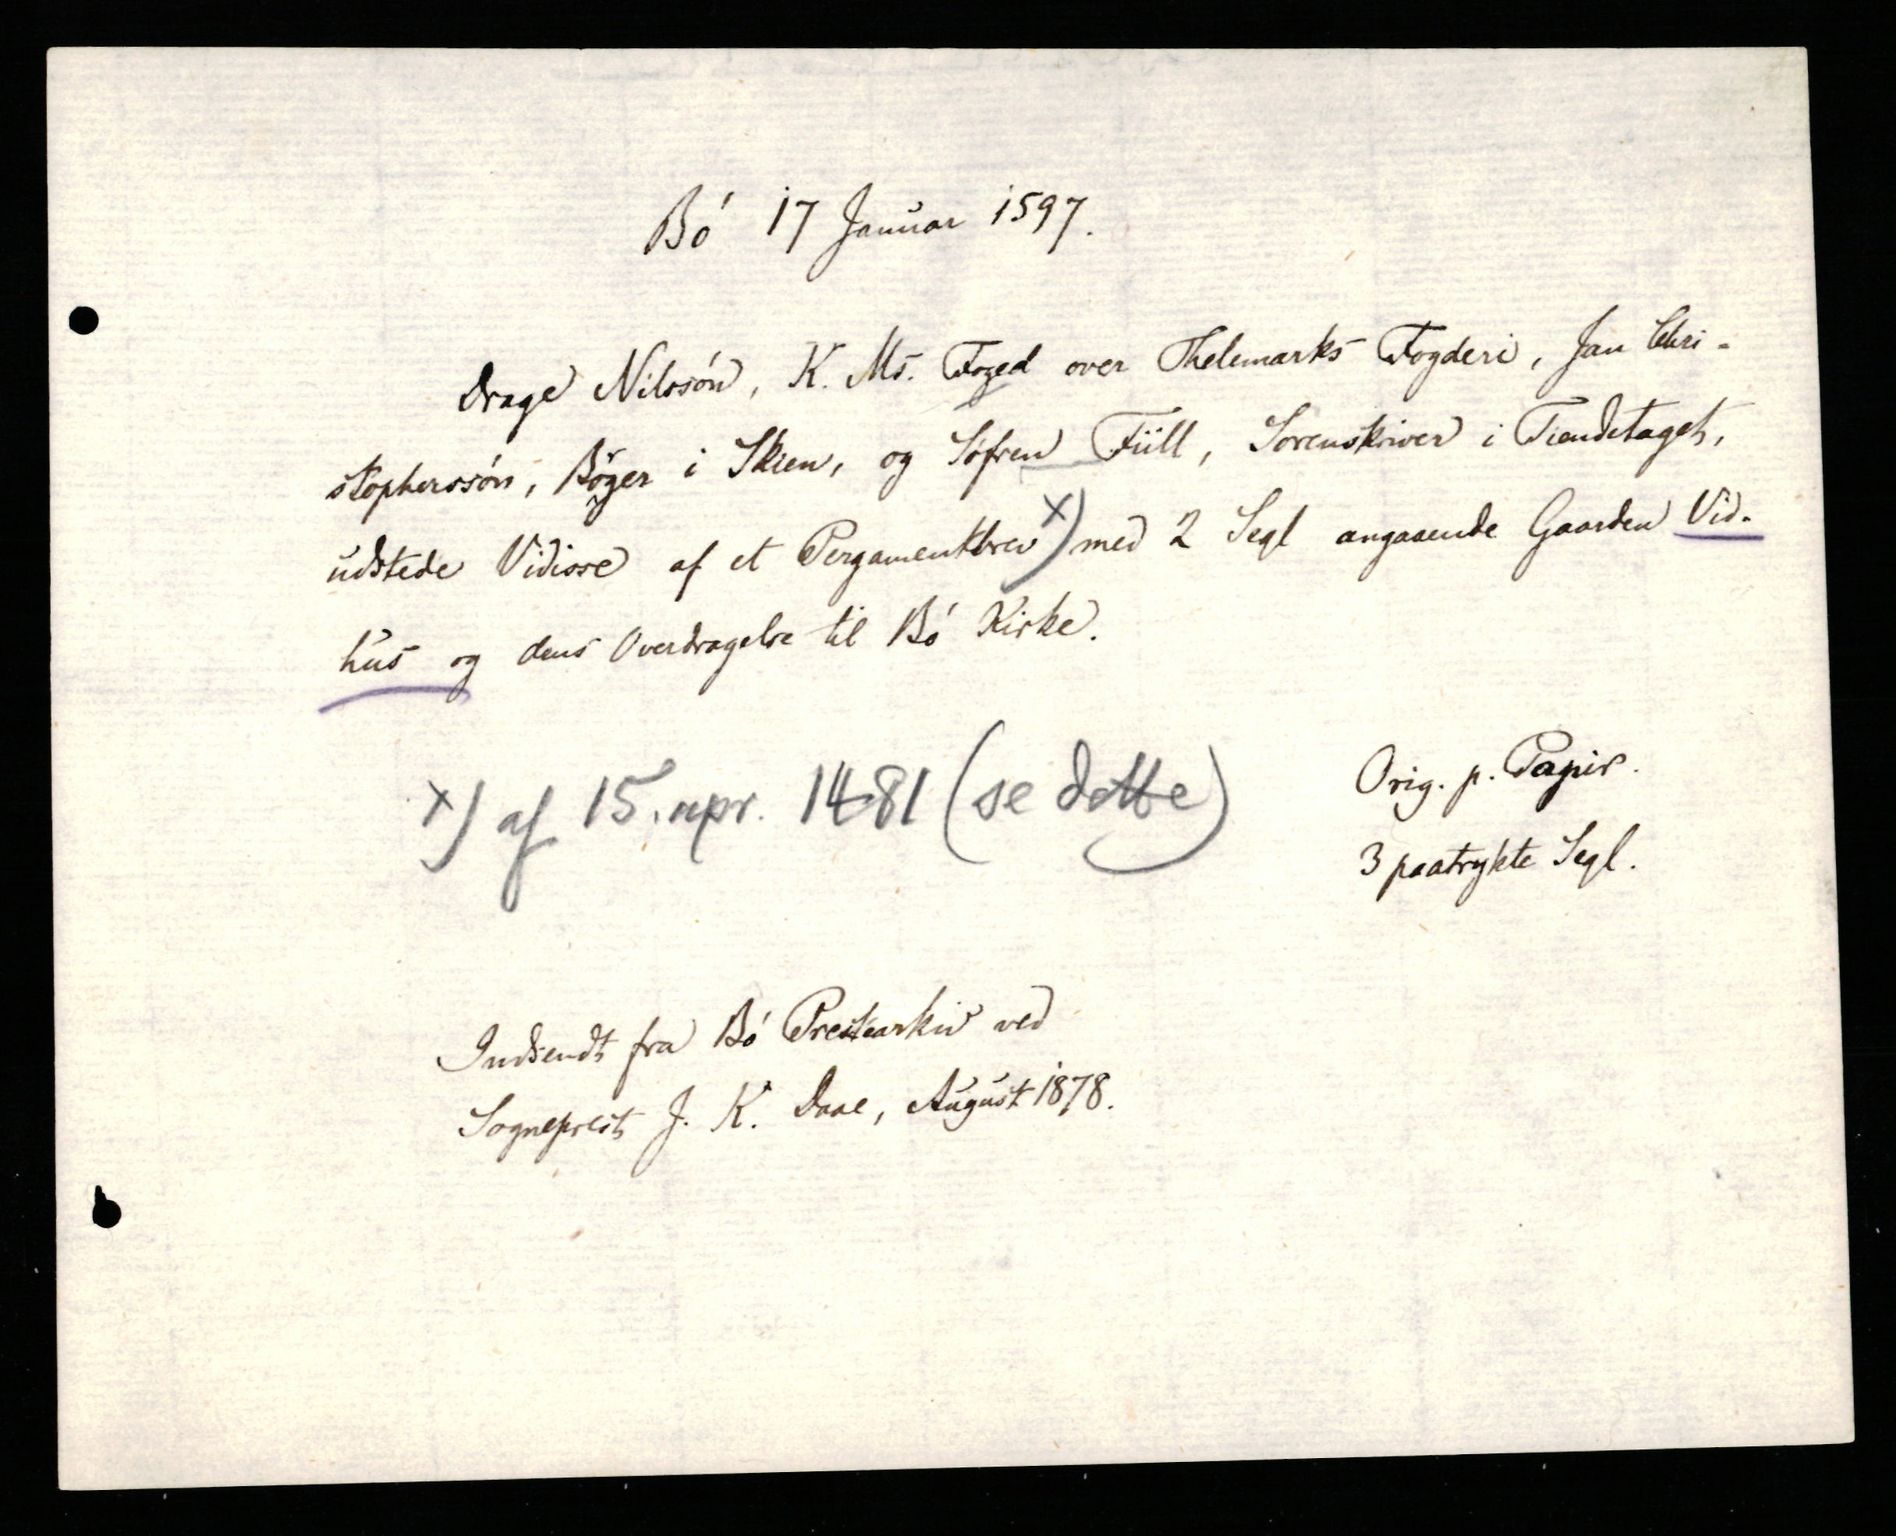 Bó 17 Januar 1597.
Drage Nilssón, K. Ms. Foged over Thelemarks Fogderi, Jan Chri-
stopherssón, Bóger i Skien, og Sófren Fiill, Sorenskriver i Tiendetaget,
udstede Vidisse af et Pergamentbrev x) med 2 Segl angaaende Gaarden Vid-
hus og dens Overdragelse til Bó Kirke.
x) af 15. apr. 1481 (se dette)
Orig. p. Papir.
3 paatrykte Segl.
Indsendt fra Bó Prestearkiv ved
Sogneprest J. K. Daae, August 1878.